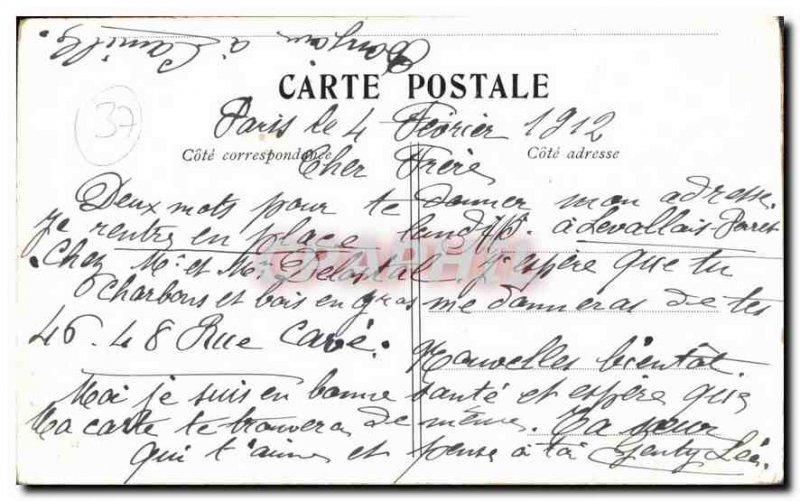 Bonjour à Camille.
CARTE POSTALE
37
Paris le 4 Février 1912
Côté correspondance
Côté adresse
Cher Frère
Deux mots pour te donner mon adresse.
je rentre en place lundi à Levallois-Perret
Chez Mr et Mme Delostal. j'espère que tu
Charbons et bois en gros me donneras de tes
46.48 Rue Cavé.
Nouvelles bientôt.
Moi je suis en bonne santé et espère que
Ma carte te trouveras de même. Ta sœur
qui t'aime et pense à toi